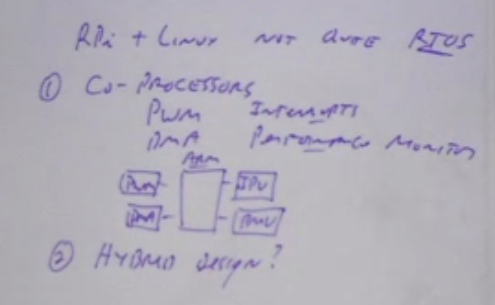 RPi + LINUX NOT QUITE RTOS
① CO-PROCESSORS
PWM INTERRUPTS
DMA PERFORMANCE MONITOR
ARM
PWM IPU
DMA PMU
② HYBRID DESIGN?